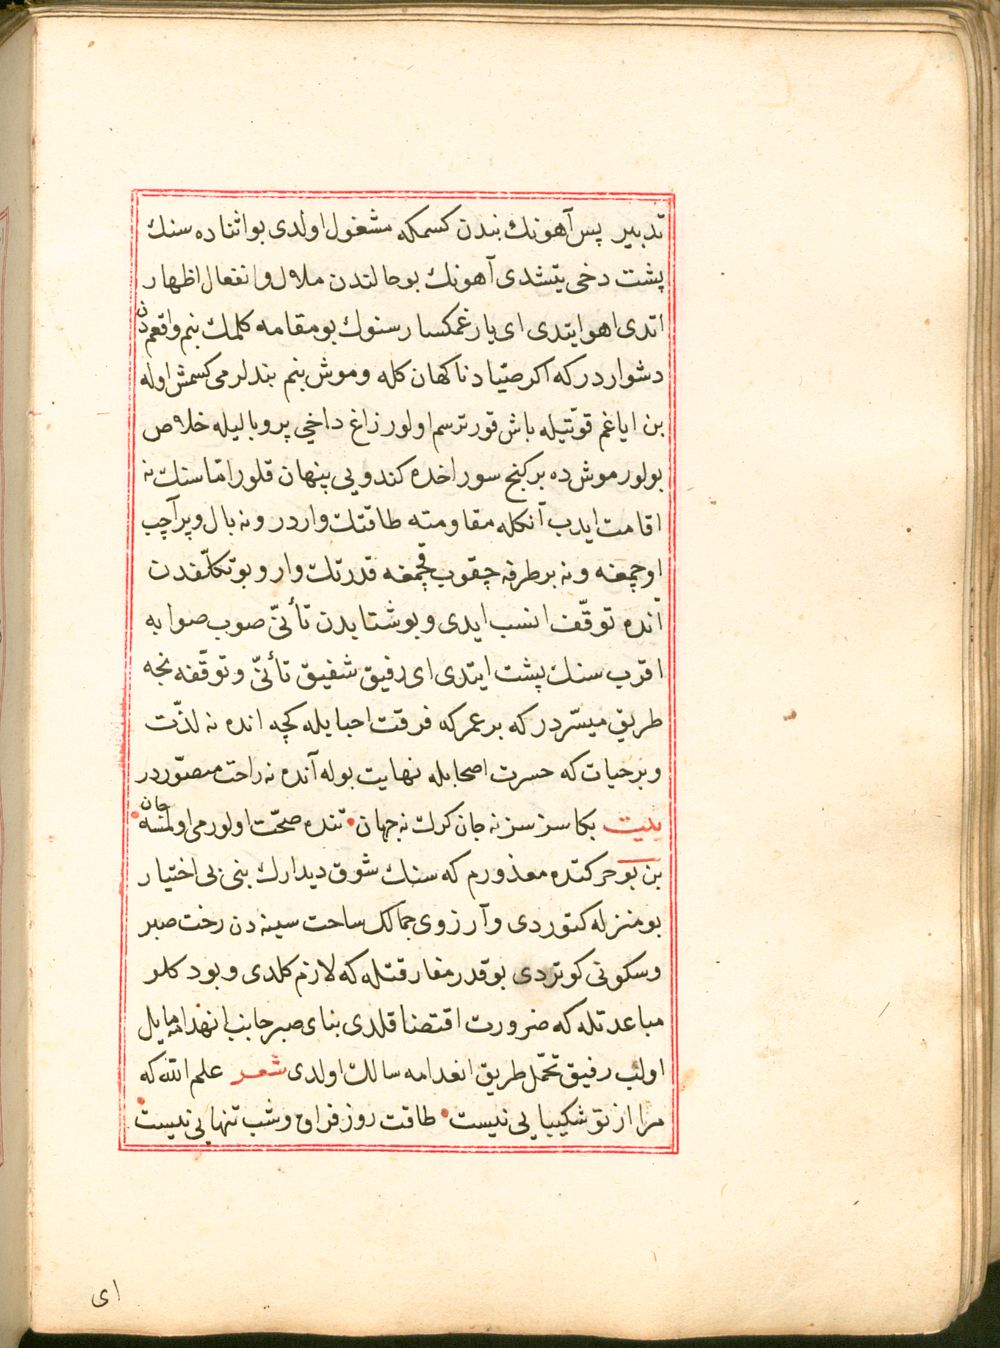 تدبير پس آهونك بندن كسمكه مشغول اولدى بو اثناده سنك
پشت دخى يتشدى آهونك بو حالتدن ملال و انفعال اظهار
اتدى اهو ايتدى اى يار غمكسار سنوك بو مقامه كلمك بنم واقعمدن
دشواردر كه اكر صيّاد ناكهان كله و موش بنم بندلرمى كسمش اوله
بن اياغم قوّتيله باش قورترسم اولور زاغ داخي پر و باليله خلاص
بولور موش ده بر كنج سوراخده كندويى پنهان قلور امّا سنك نه
اقامت ايدب آنكله مقاومته طاقتك واردر و نه بال و پر آچب
اوچمغه و نه بر طرفه چقوب قچمغه قدرتك وار و بو تكلّفدن
آنده توقّف انسب ايدى و بو شتابدن تأنّى صوب صوابه
اقرب سنك پشت ايتدى اى رفيق شفيق تأنّى و توقّفه نجه
طريق ميسّردر كه بر عمر كه فرقت احبا يله كچه انده نه لذّت
و بر حيات كه حسرت اصحابله نهايت بوله آنده نه راحت متصوّردر
بيت بكا سزسز نه جان كرك نه جهان • تنده صحّت اولورمى اولمسه جان •
بن بو حركتده معذورم كه سنك شوق ديدارك بنى بى اختيار
بو منزله كتوردى و آرزوى جمالك ساحت سينه دن رخت صبر
و سكونى كوتردى بو قدر مفارقتله كه لازم كلدى و بو دكلو
مباعدتله كه ضرورت اقتضا قلدى بناى صبر جانب انهدامه مايل
اولب رفيق تحمّل طريق انعدامه سالك اولدى شعر علم الله كه
مرا از تو شكيبايى نيست • طاقت روز فراق و شب تنهايى نيست •
اى